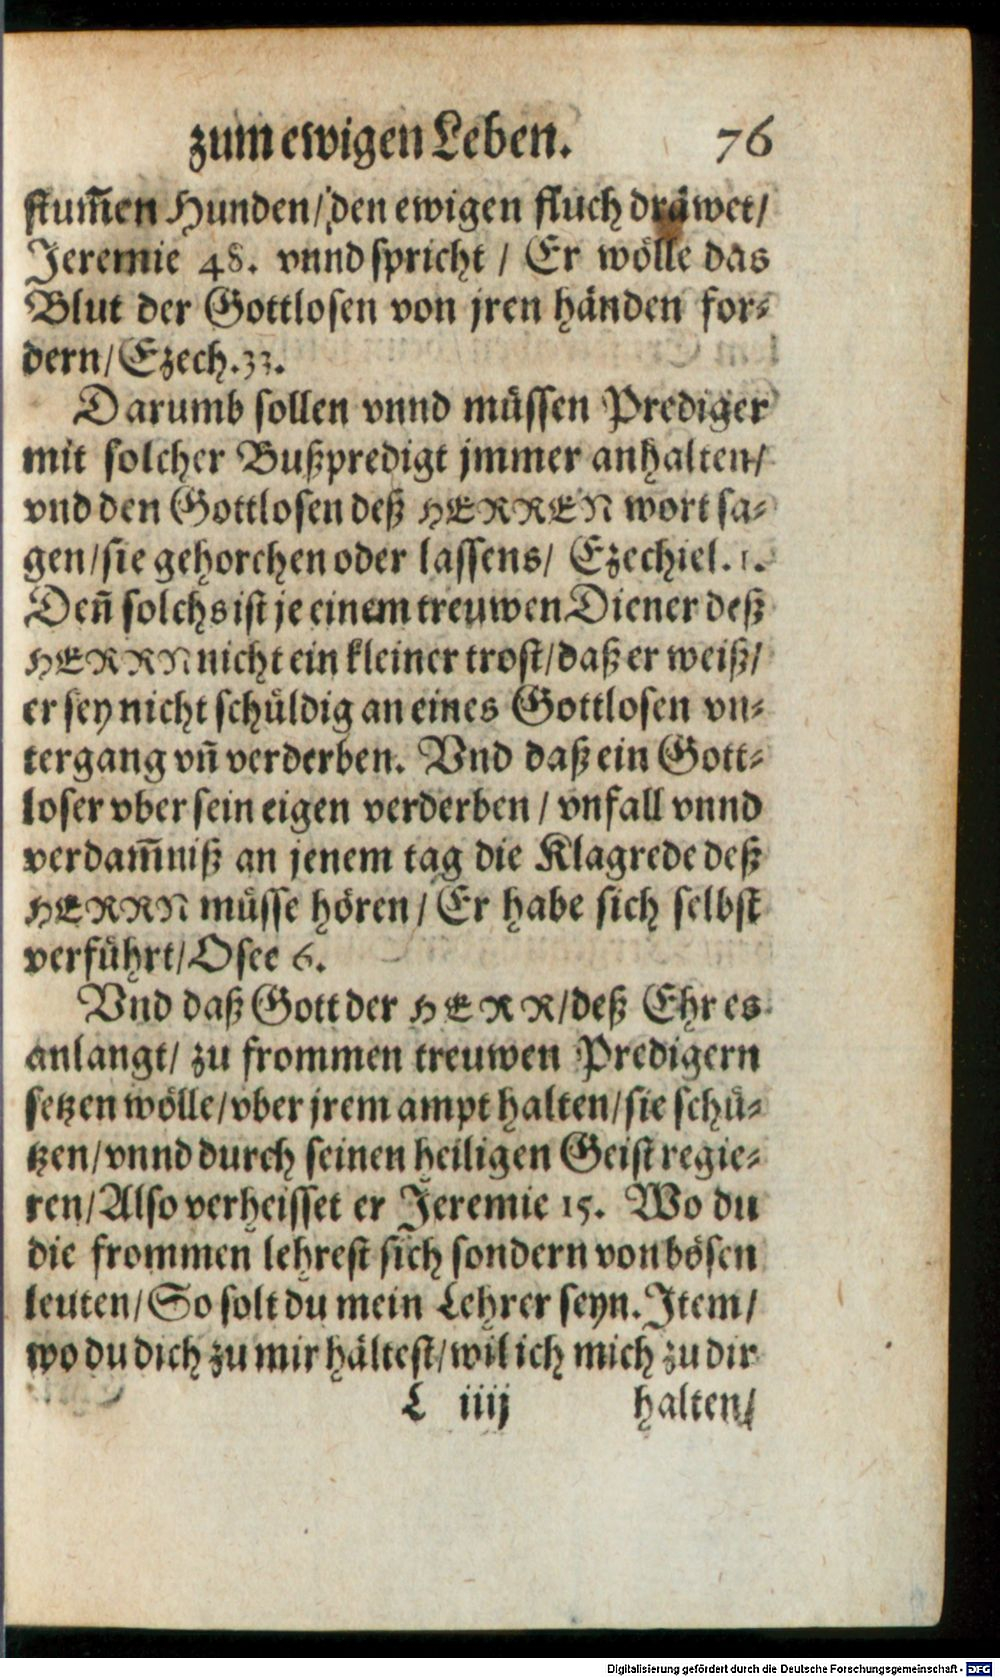 zum ewigen Leben. 76
stum̃en Hunden/ den ewigen fluch dräwet/
Jeremie 48. vnnd spricht / Er wölle das
Blut der Gottlosen von jren händen for-
dern/ Ezech. 33.
Darumb sollen vnnd müssen Prediger
mit solcher Bußpredigt jmmer anhalten/
vnd den Gottlosen deß HERREN wort sa-
gen/ sie gehorchen oder lassens/ Ezechiel. 1.
Deñ solchs ist je einem treuwen Diener deß
HERRN nicht ein kleiner trost/ daß er weiß/
er sey nicht schüldig an eines Gottlosen vn-
tergang vñ verderben. Vnd daß ein Gott-
loser vber sein eigen verderben / vnfall vnnd
verdam̃niß an jenem tag die Klagrede deß
HERRN müsse hören / Er habe sich selbst
verführt/ Osee 6.
Vnd daß Gott der HERR/ deß Ehr es
anlangt/ zu frommen treuwen Predigern
setzen wölle/ vber jrem ampt halten/ sie schü-
tzen/ vnnd durch seinen heiligen Geist regie-
ren/ Also verheisset er Jeremie 15. Wo du
die frommen lehrest sich sondern von bösen
leuten/ So solt du mein Lehrer seyn. Item/
wo du dich zu mir hältest/ wil ich mich zu dir
L iiij halten/
Digitalisierung gefördert durch die Deutsche Forschungsgemeinschaft - DFG